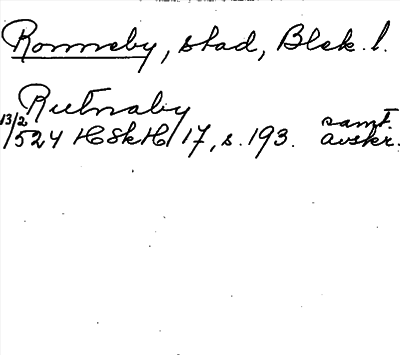 Ronneby, stad, Blek. l.
Rutnaby
13/2 1524 HSkH 17, s. 193. samt. avskr.